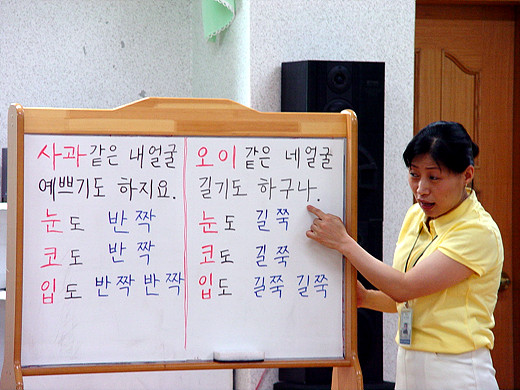 사과 같은 내얼굴
예쁘기도 하지요.
눈도 반짝
코도 반짝
입도 반짝 반짝
오이 같은 네얼굴
길기도 하구나.
눈도 길쭉
코도 길쭉
입도 길쭉 길쭉